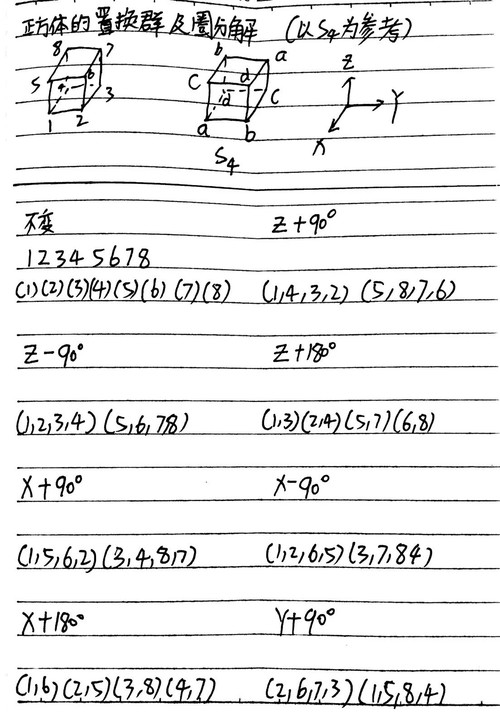 正方体的置换群及圈分解 (以S4为参考)
8 7 b a
5 6 c d Z
4 3 d c Y
1 2 a b X
S4
不变 Z+90°
12345678
(1)(2)(3)(4)(5)(6)(7)(8) (1,4,3,2) (5,8,7,6)
Z-90° Z+180°
(1,2,3,4) (5,6,7,8) (1,3)(2,4)(5,7)(6,8)
X+90° X-90°
(1,5,6,2)(3,4,8,7) (1,2,6,5)(3,7,8,4)
X+180° Y+90°
(1,6)(2,5)(3,8)(4,7) (2,6,7,3)(1,5,8,4)